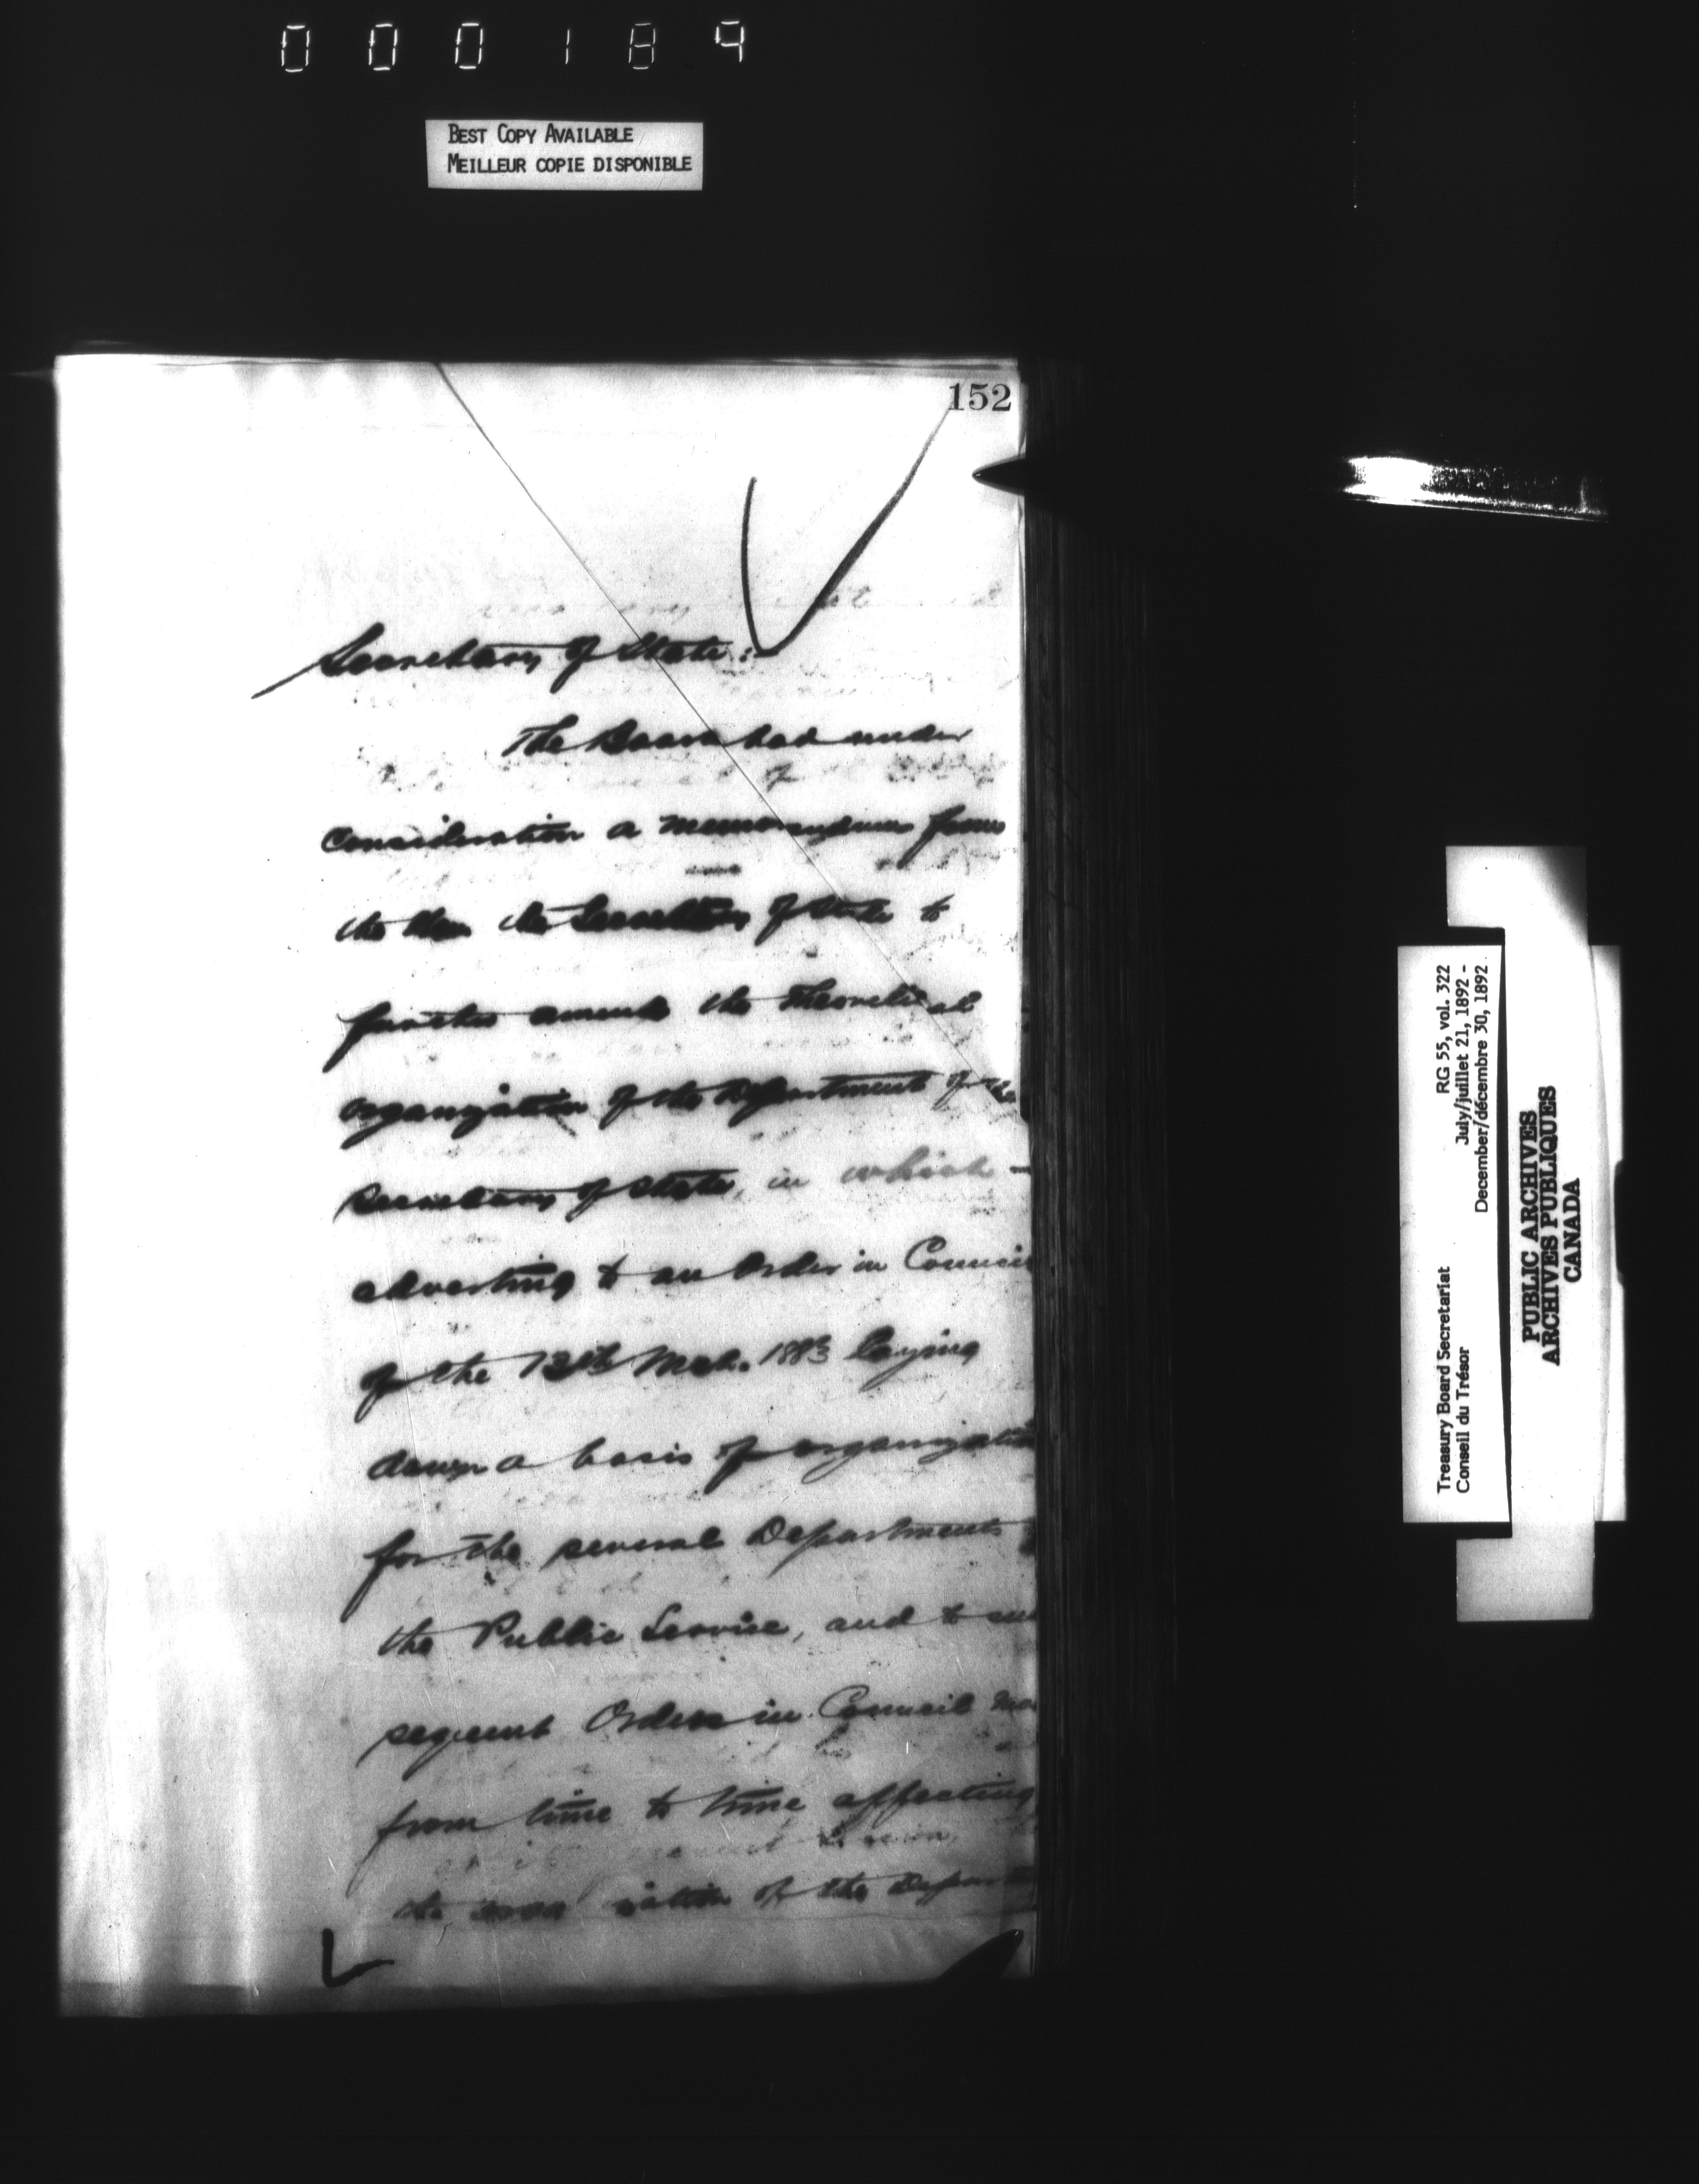 000189
BEST COPY AVAILABLE
MEILLEUR COPIE DISPONIBLE
152
Secretary of State:
The Board had under
consideration a memorandum from
the Hon. the Secretary of State to
further amend the Theoretical
organization of the Department of the
Secretary of State, in which -
adverting to an Order in Council
of the 13th Mch. 1883 laying
down a basis of organization
for the several Departments
the Public Service, and to sub
sequent Orders in Council
from time to time affecting
the of the Depart
RG 55, vol. 322
July/juillet 21, 1892 -
December/décembre 30, 1892
Treasury Board Secretariat
Conseil du Trésor
PUBLIC ARCHIVES
ARCHIVES PUBLIQUES
CANADA